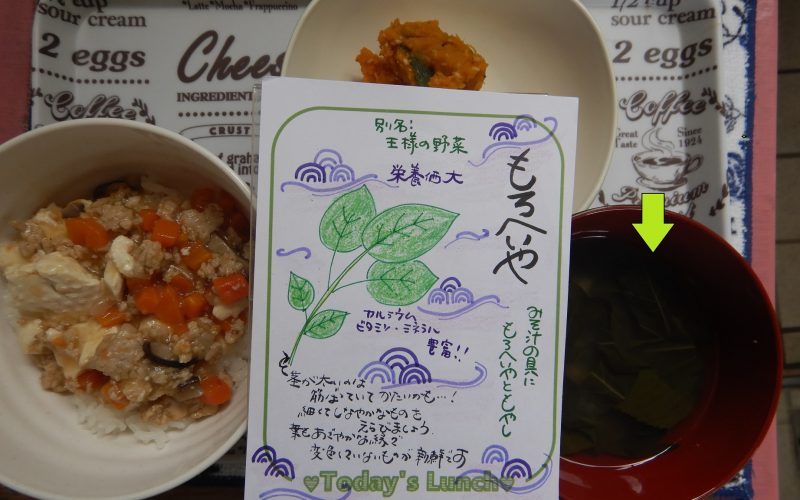 "Latte" "Mocha" Frappuccino
sour cream
2 eggs
Chees
INGREDIENT
CRUST
Coffee
graha
1/2 cup
sour cream
2 eggs
Coffee
Great
Taste
Since
1924
別名:
王様の野菜
栄養価大
もろへいや
カルシウム
ビタミン・ミネラル
豊富!!
みそ汁の具に
もろへいやともやし
茎が太いのは
筋ばっていてかたいかも…!
細くてしなやかなものを
えらびましょう
葉もあざやかな緑で
変色していないものが新鮮です
♥Today's Lunch♥